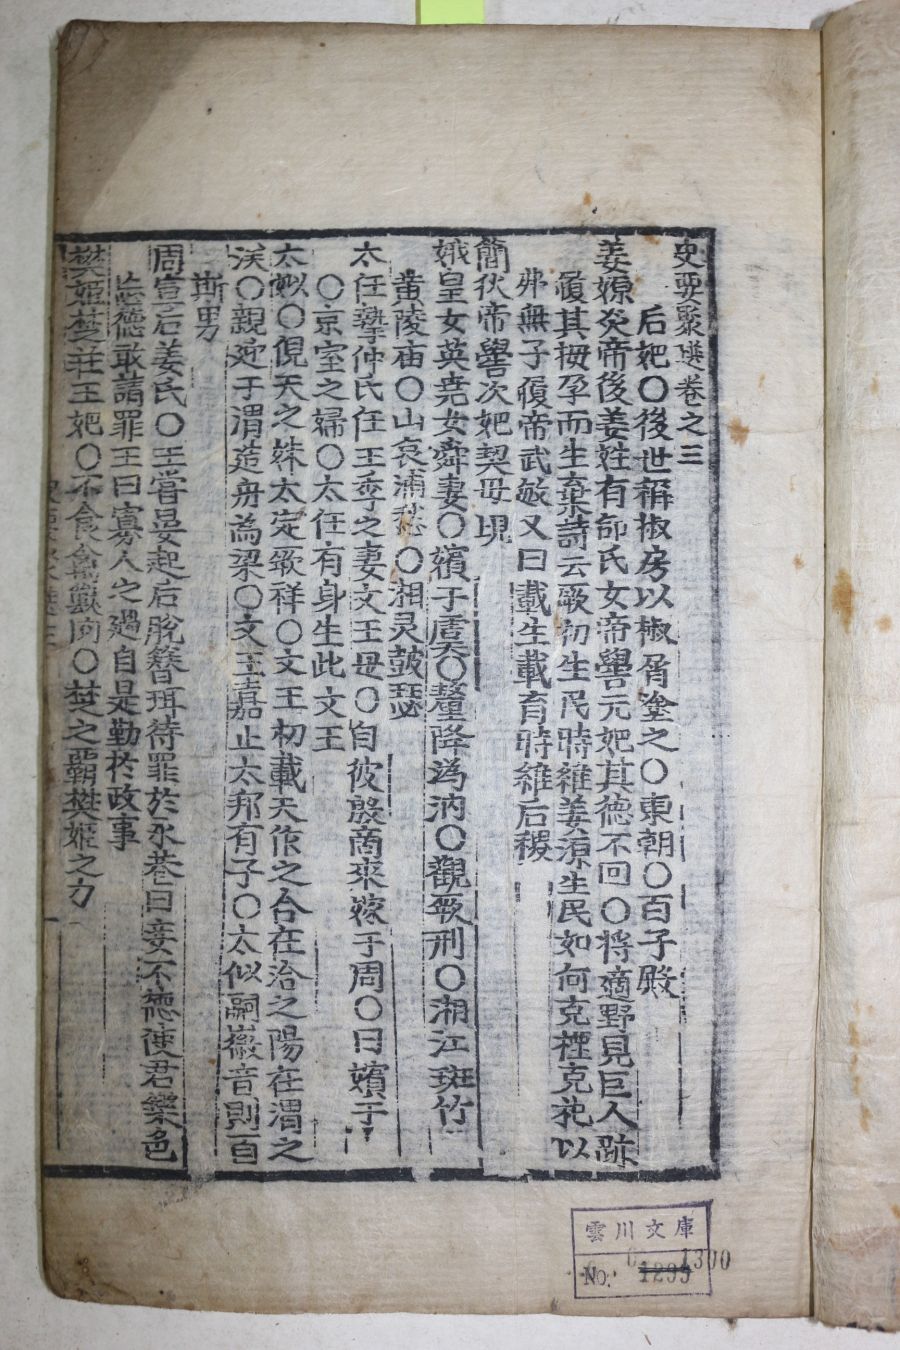 史要聚選卷之三
后妃〇後世稱椒房以椒屑塗之〇東朝〇百子殿
姜嫄炎帝後姜姓有邰氏女帝嚳元妃其德不回〇將適野見巨人跡
履其拇孕而生棄詩云厥初生民時維姜嫄生民如何克禋克祀以
弗無子履帝武敏又曰載生載育時維后稷
簡狄帝嚳次妃契母
娥皇女英堯女舜妻〇嬪于虞〇釐降溈汭〇觀厥刑〇湘江斑竹
黄陵庙〇山哀浦愁〇湘灵鼓瑟
太任摯仲氏任王季之妻文王母〇自彼殷商來嫁于周〇曰嬪于
〇京室之婦〇太任有身生此文王
太姒〇俔天之妹太定厥祥〇文王初載天作之合在洽之陽在渭之
涘〇親迎于渭造舟為梁〇文王嘉止太邦有子〇太姒嗣徽音則百
斯男
周宣后姜氏〇王嘗晏起后脫簪珥待罪於永巷曰妾不德使君樂色
忘德敢請罪王曰寡人之過自是勤於政事
樊姬楚莊王妃〇不食禽獸肉〇楚之霸樊姬之力
雲川文庫
No. 1299 1300